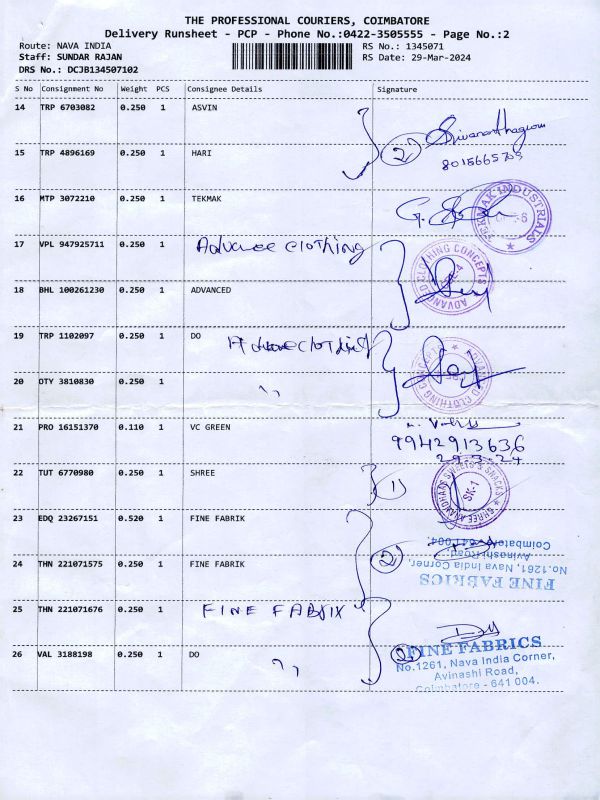 THE PROFESSIONAL COURIERS, COIMBATORE
Delivery Runsheet - PCP - Phone No.:0422-3505555 - Page No.:2
Route: NAVA INDIA
RS No.: 1345071
Staff: SUNDAR RAJAN
RS Date: 29-Mar-2024
DRS No.: DCJB134507102
S No Consignment No Weight PCS Consignee Details Signature
14 TRP 6703082 0.250 1 ASVIN
2
15 TRP 4896169 0.250 1 HARI
16 MTP 3072210 0.250 1 TEKMAK
TEKMAK INDUSTRIALS
17 VPL 947925711 0.250 1 Advance clothing
ADVANCED CLOTHING CONCEPTS
18 BHL 100261230 0.250 1 ADVANCED
19 TRP 1102097 0.250 1 DO
ADVANCED CLOTHING CONCEPTS
20 OTY 3810830 0.250 1 ,,
21 PRO 16151370 0.110 1 VC GREEN
9942913636
29-3-24
22 TUT 6770980 0.250 1 SHREE
1)
SHREE ANANDHAAS SWEETS & SNACKS
SK-1
23 EDQ 23267151 0.520 1 FINE FABRIK
24 THN 221071575 0.250 1 FINE FABRIK
2
FINE FABRICS
No.1261, Nava India Corner,
Avinashi Road,
Coimbatore - 641 004.
25 THN 221071676 0.250 1 FINE FABRIX
26 VAL 3188198 0.250 1 DO
,,
2
FINE FABRICS
No.1261, Nava India Corner,
Avinashi Road,
Coimbatore - 641 004.